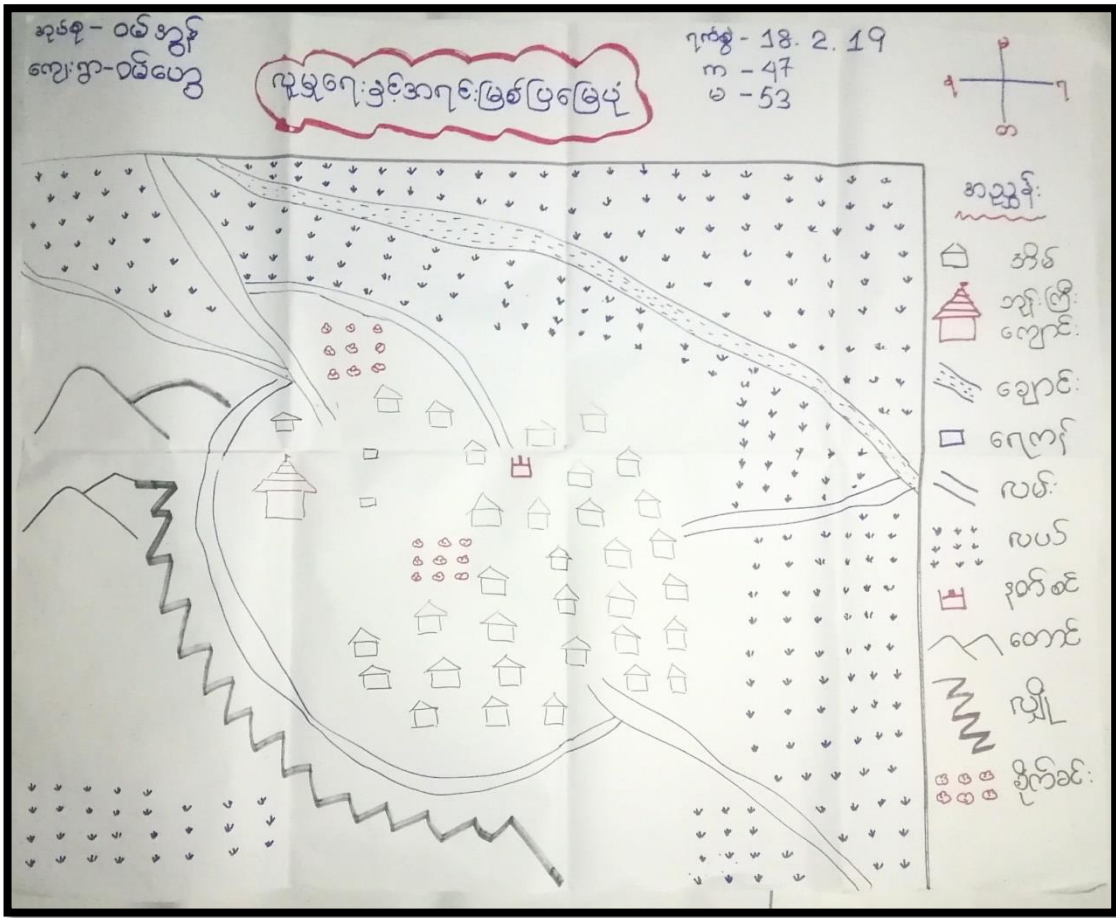 အုပ်စု - ဝမ်အွန်
ကျေးရွာ - ဝမ်ဟွေ
လူမှုရေးနှင့်အရင်းမြစ်ပြမြေပုံ
ရက်စွဲ - 18. 2. 19
က - 47
မ - 53
မ
တ
အညွှန်း
အိမ်
ဘုန်းကြီး
ကျောင်း
ချောင်း
ရေကန်
လမ်း
လယ်
နတ်စင်
တောင်
လျှို
စိုက်ခင်း